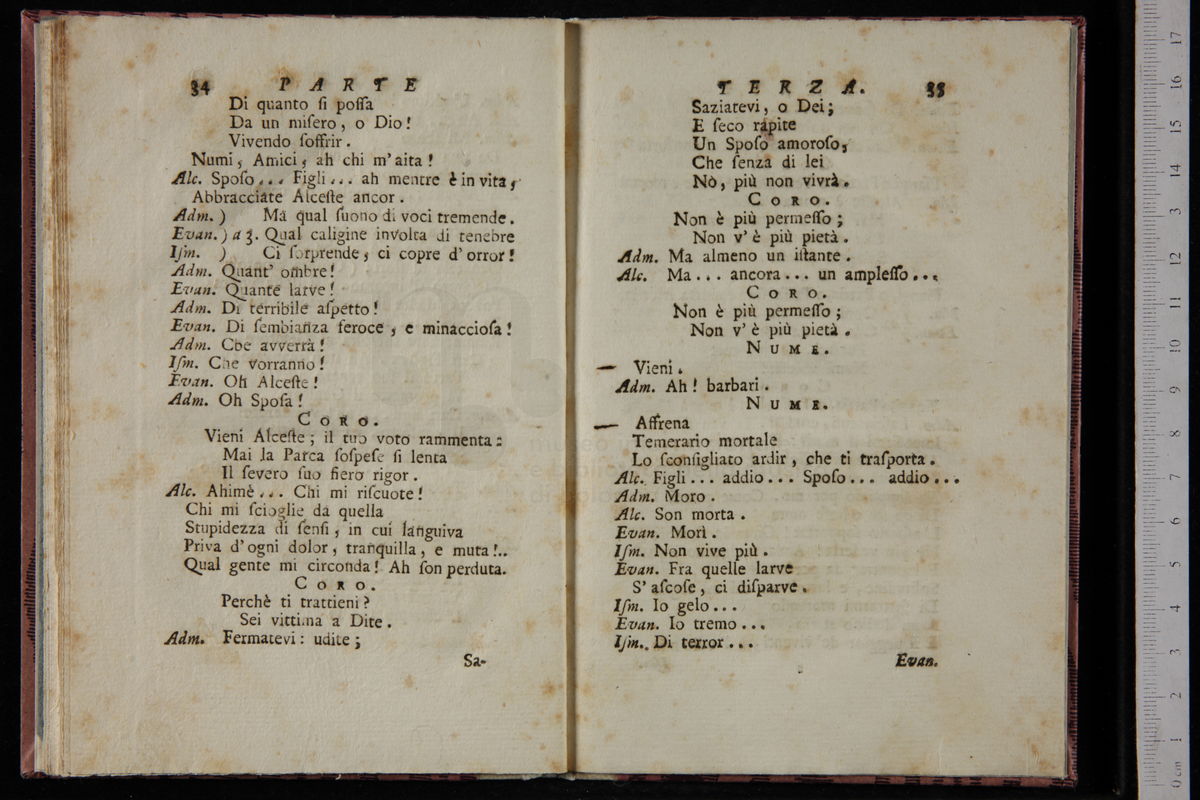 34 PARTE
Di quanto ſi poſſa
Da un miſero, o Dio!
Vivendo ſoffrir.
Numi, Amici, ah chi m'aita!
Alc. Spoſo... Figli... ah mentre è in vita,
Abbracciate Alceſte ancor.
Adm. ) Ma qual ſuono di voci tremende.
Evan. ) a 3. Qual caligine involta di tenebre
Iſm. ) Ci ſorprende, ci copre d'orror!
Adm. Quant' ombre!
Evan. Quante larve!
Adm. Di terribile aſpetto!
Evan. Di ſembianza feroce, e minaccioſa!
Adm. Che avverrà!
Iſm. Che vorranno!
Evan. Oh Alceſte!
Adm. Oh Spoſa!
CORO.
Vieni Alceſte; il tuo voto rammenta:
Mai la Parca ſoſpeſe ſi lenta
Il ſevero ſuo fiero rigor.
Alc. Ahimè... Chi mi riſcuote!
Chi mi ſcioglie da quella
Stupidezza di ſenſi, in cui languiva
Priva d'ogni dolor, tranquilla, e muta!..
Qual gente mi circonda! Ah ſon perduta.
CORO.
Perchè ti trattieni?
Sei vittima a Dite.
Adm. Fermatevi: udite;
Sa-
TERZA. 35
Saziatevi, o Dei;
E ſeco rapite
Un Spoſo amoroſo,
Che ſenza di lei
Nò, più non vivrà.
CORO.
Non è più permeſſo;
Non v'è più pietà.
Adm. Ma almeno un iſtante.
Alc. Ma... ancora... un ampleſſo...
CORO.
Non è più permeſſo;
Non v'è più pietà.
NUME.
Vieni.
Adm. Ah! barbari.
NUME.
Affrena
Temerario mortale
Lo ſconſigliato ardir, che ti traſporta.
Alc. Figli... addio... Spoſo... addio...
Adm. Moro.
Alc. Son morta.
Evan. Morì.
Iſm. Non vive più.
Evan. Fra quelle larve
S'aſcoſe, ci diſparve.
Iſm. Io gelo...
Evan. Io tremo...
Iſm. Di terror...
Evan.
0 cm 1 2 3 4 5 6 7 8 9 10 11 12 13 14 15 16 17